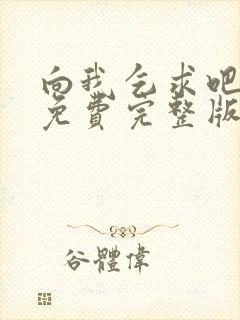 向我乞求吧
免費完整版
谷體偉